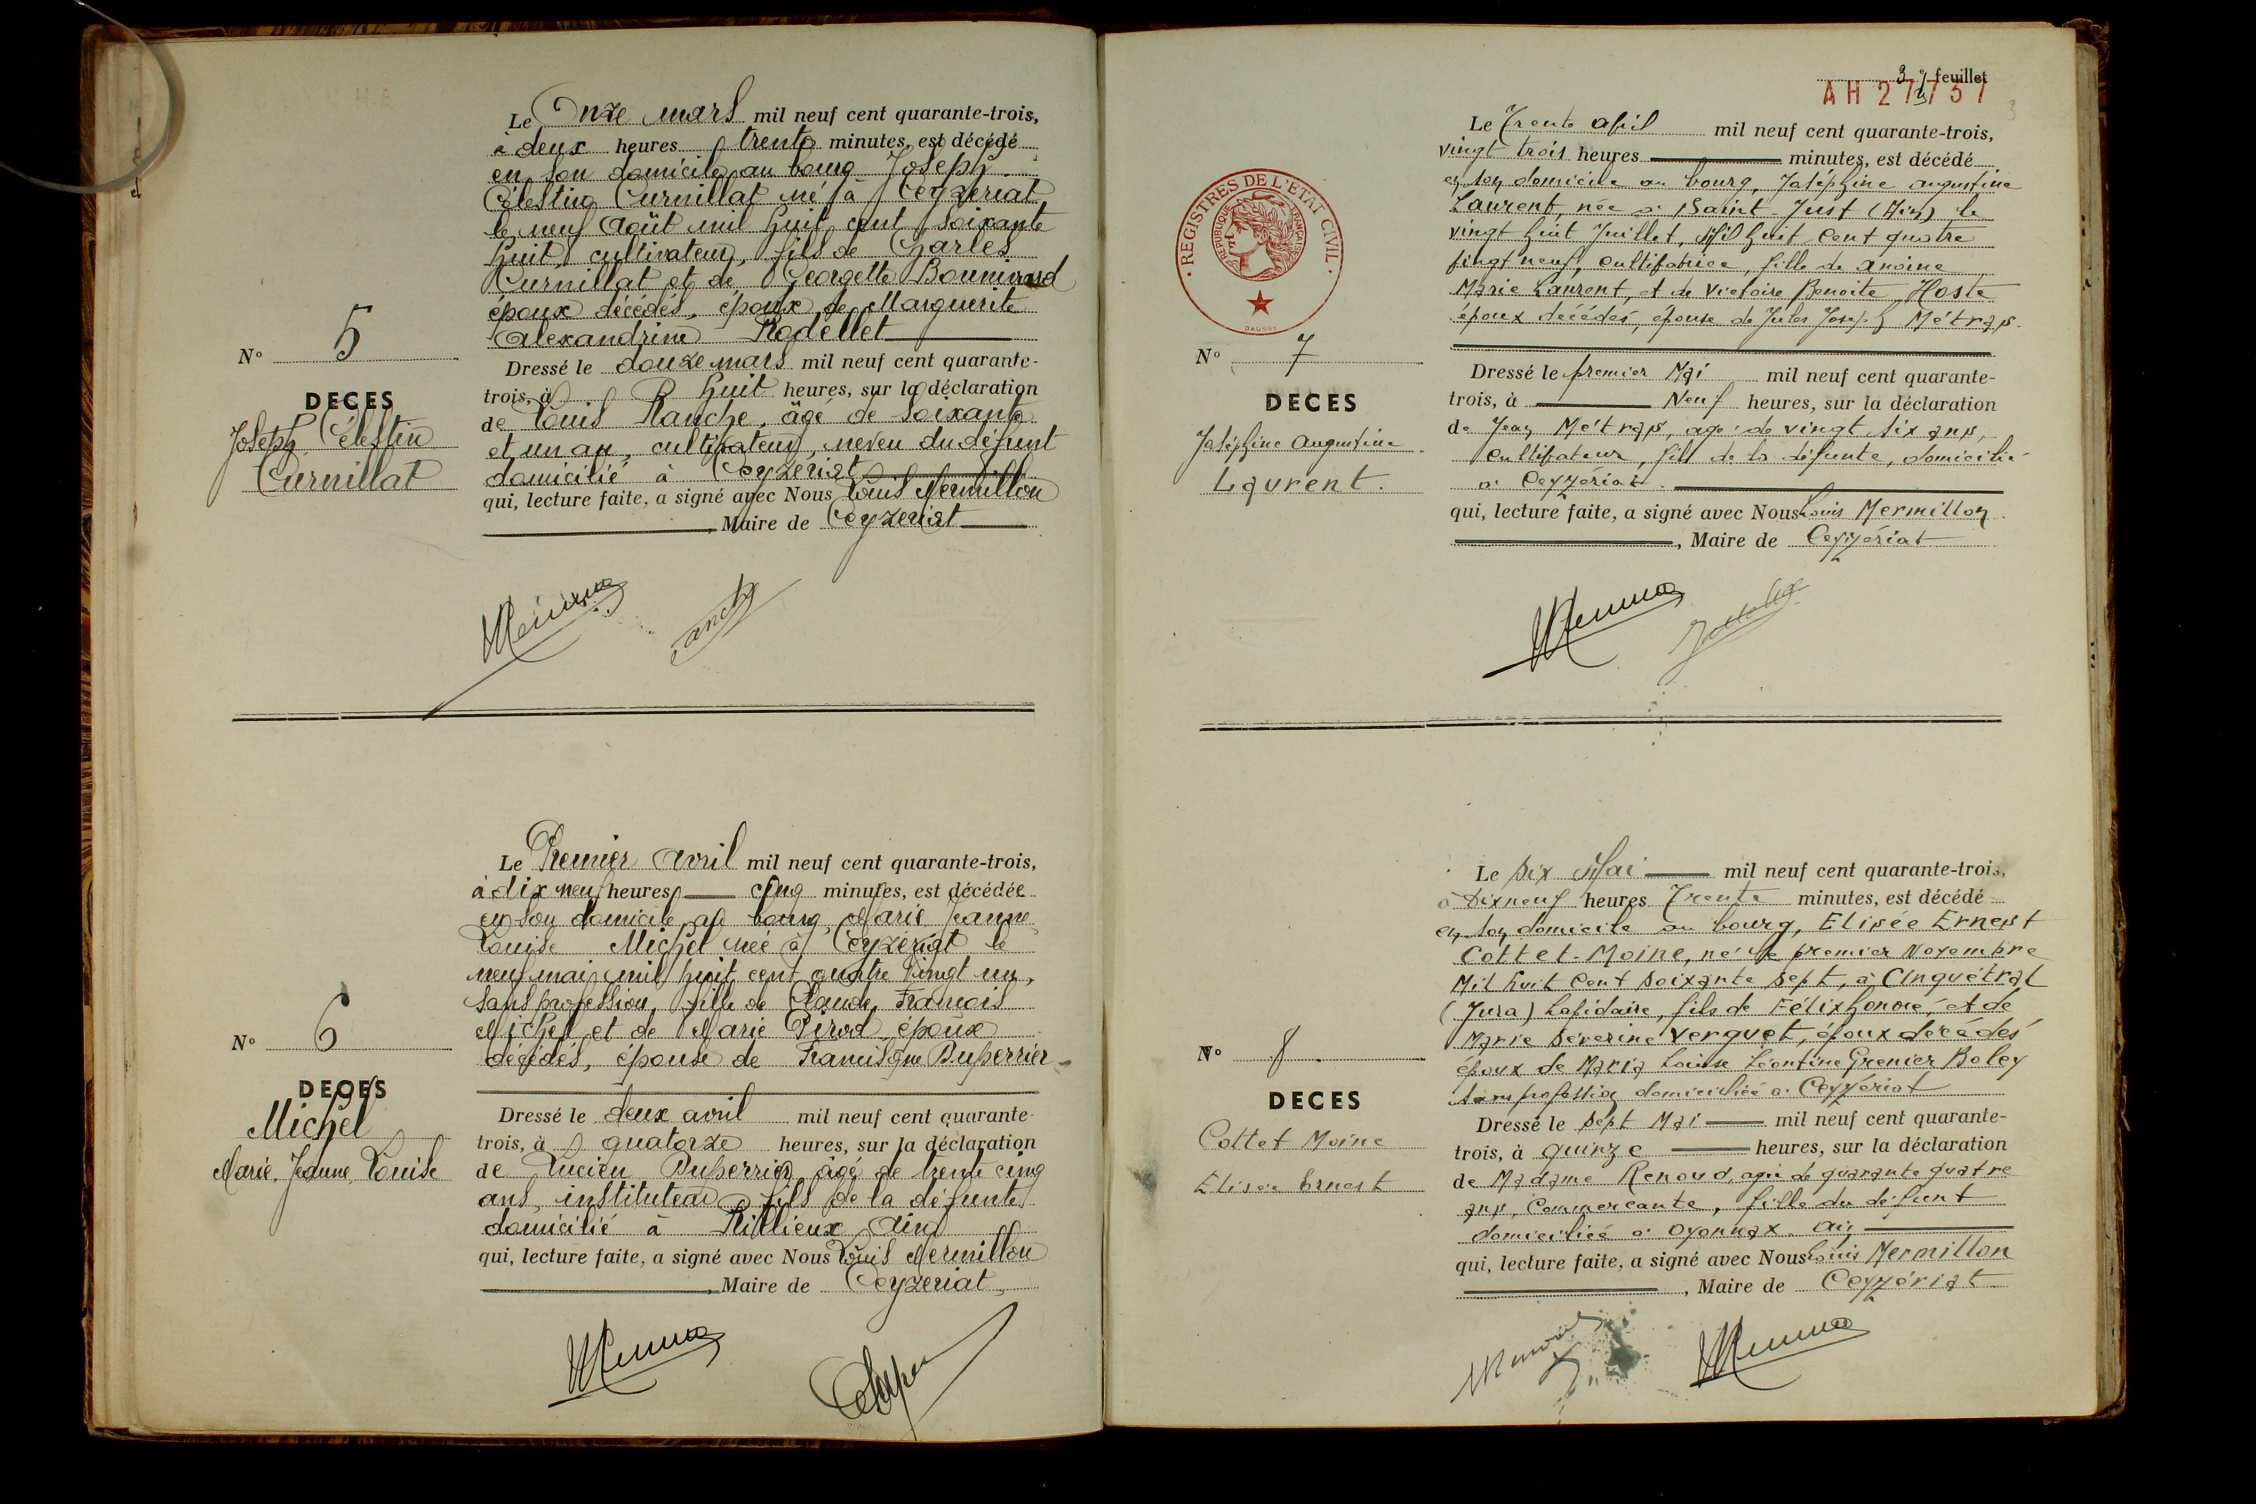 Le Onze mars mil neuf cent quarante-trois,
à deux heures trente minutes, est décédé
en son domicile au bourg Joseph
Célestin Curnillat né à Ceyzeriat
le neuf Août mil huit cent soixante
huit, cultivateur, fils de Charles
Curnillat et de Georgette
époux décédés, époux de Marguerite
Alexandrine Rodellet
N° 5
DECES
Joseph Célestin
Curnillat
Dressé le douze mars mil neuf cent quarante-
trois, à huit heures, sur la déclaration
de Louis Planche, âgé de soixante
et un an, cultivateur, neveu du défunt
domicilié à Ceyzeriat
qui, lecture faite, a signé avec Nous Louis Mermillon
, Maire de Ceyzeriat
Le Premier Avril mil neuf cent quarante-trois,
à dix neuf heures cinq minutes, est décédée
en son domicile au bourg, Marie Jeanne
Louise Michel née à Ceyzériat le
neuf mai mil huit cent quatre vingt un,
sans profession, fille de Claude François
Michel et de Marie Pirod époux
décédés, épouse de Francisque Duperrier
N° 6
DECES
Michel
Marie Jeanne Louise
Dressé le deux avril mil neuf cent quarante-
trois, à quatorze heures, sur la déclaration
de Lucien Duperrier, âgé de trente cinq
ans, instituteur, fils de la défunte
domicilié à Rillieux Ain
qui, lecture faite, a signé avec Nous Louis Mermillon
, Maire de Ceyzeriat
3 feuillet
AH 27737
REGISTRES DE L'ETAT CIVIL
REPUBLIQUE FRANÇAISE
Le Trente Avril mil neuf cent quarante-trois,
vingt trois heures minutes, est décédé
en son domicile au bourg, Joséphine Augustine
Laurent, née à Saint-Just (Ain) le
vingt huit Juillet, Mil huit Cent quatre
vingt neuf, Cultivatrice, fille de
Marie Laurent, et de Victoire Benoite Hoste
époux décédés, épouse de Jules Joseph Métras.
N° 7
DECES
Joséphine Augustine
Laurent.
Dressé le premier Mai mil neuf cent quarante-
trois, à Neuf heures, sur la déclaration
de Jean Métras, agé de vingt six ans,
Cultivateur, fils de la défunte, domicilié
à Ceyzériat.
qui, lecture faite, a signé avec Nous Louis Mermillon.
, Maire de Ceyzériat
Le Six Mai mil neuf cent quarante-trois,
à Dixneuf heures Trente minutes, est décédé
en son domicile au bourg, Elisée Ernest
Cottet-Moine, né le premier Novembre
Mil huit Cent Soixante Sept, à Cinquétral
(Jura) Lapidaire, fils de Félix honoré, et de
Marie Séverine Verguet, époux décédés
époux de Maria Louise Léontine Grenier Boley
sans profession domiciliée à Ceyzériat
N° 8
DECES
Cottet Moine
Elisée Ernest
Dressé le Sept Mai mil neuf cent quarante-
trois, à quinze heures, sur la déclaration
de Madame Renoud, agée de quarante quatre
ans, Commercante, fille du défunt
domiciliée à Oyonnax. Ain
qui, lecture faite, a signé avec Nous Louis Mermillon
, Maire de Ceyzériat